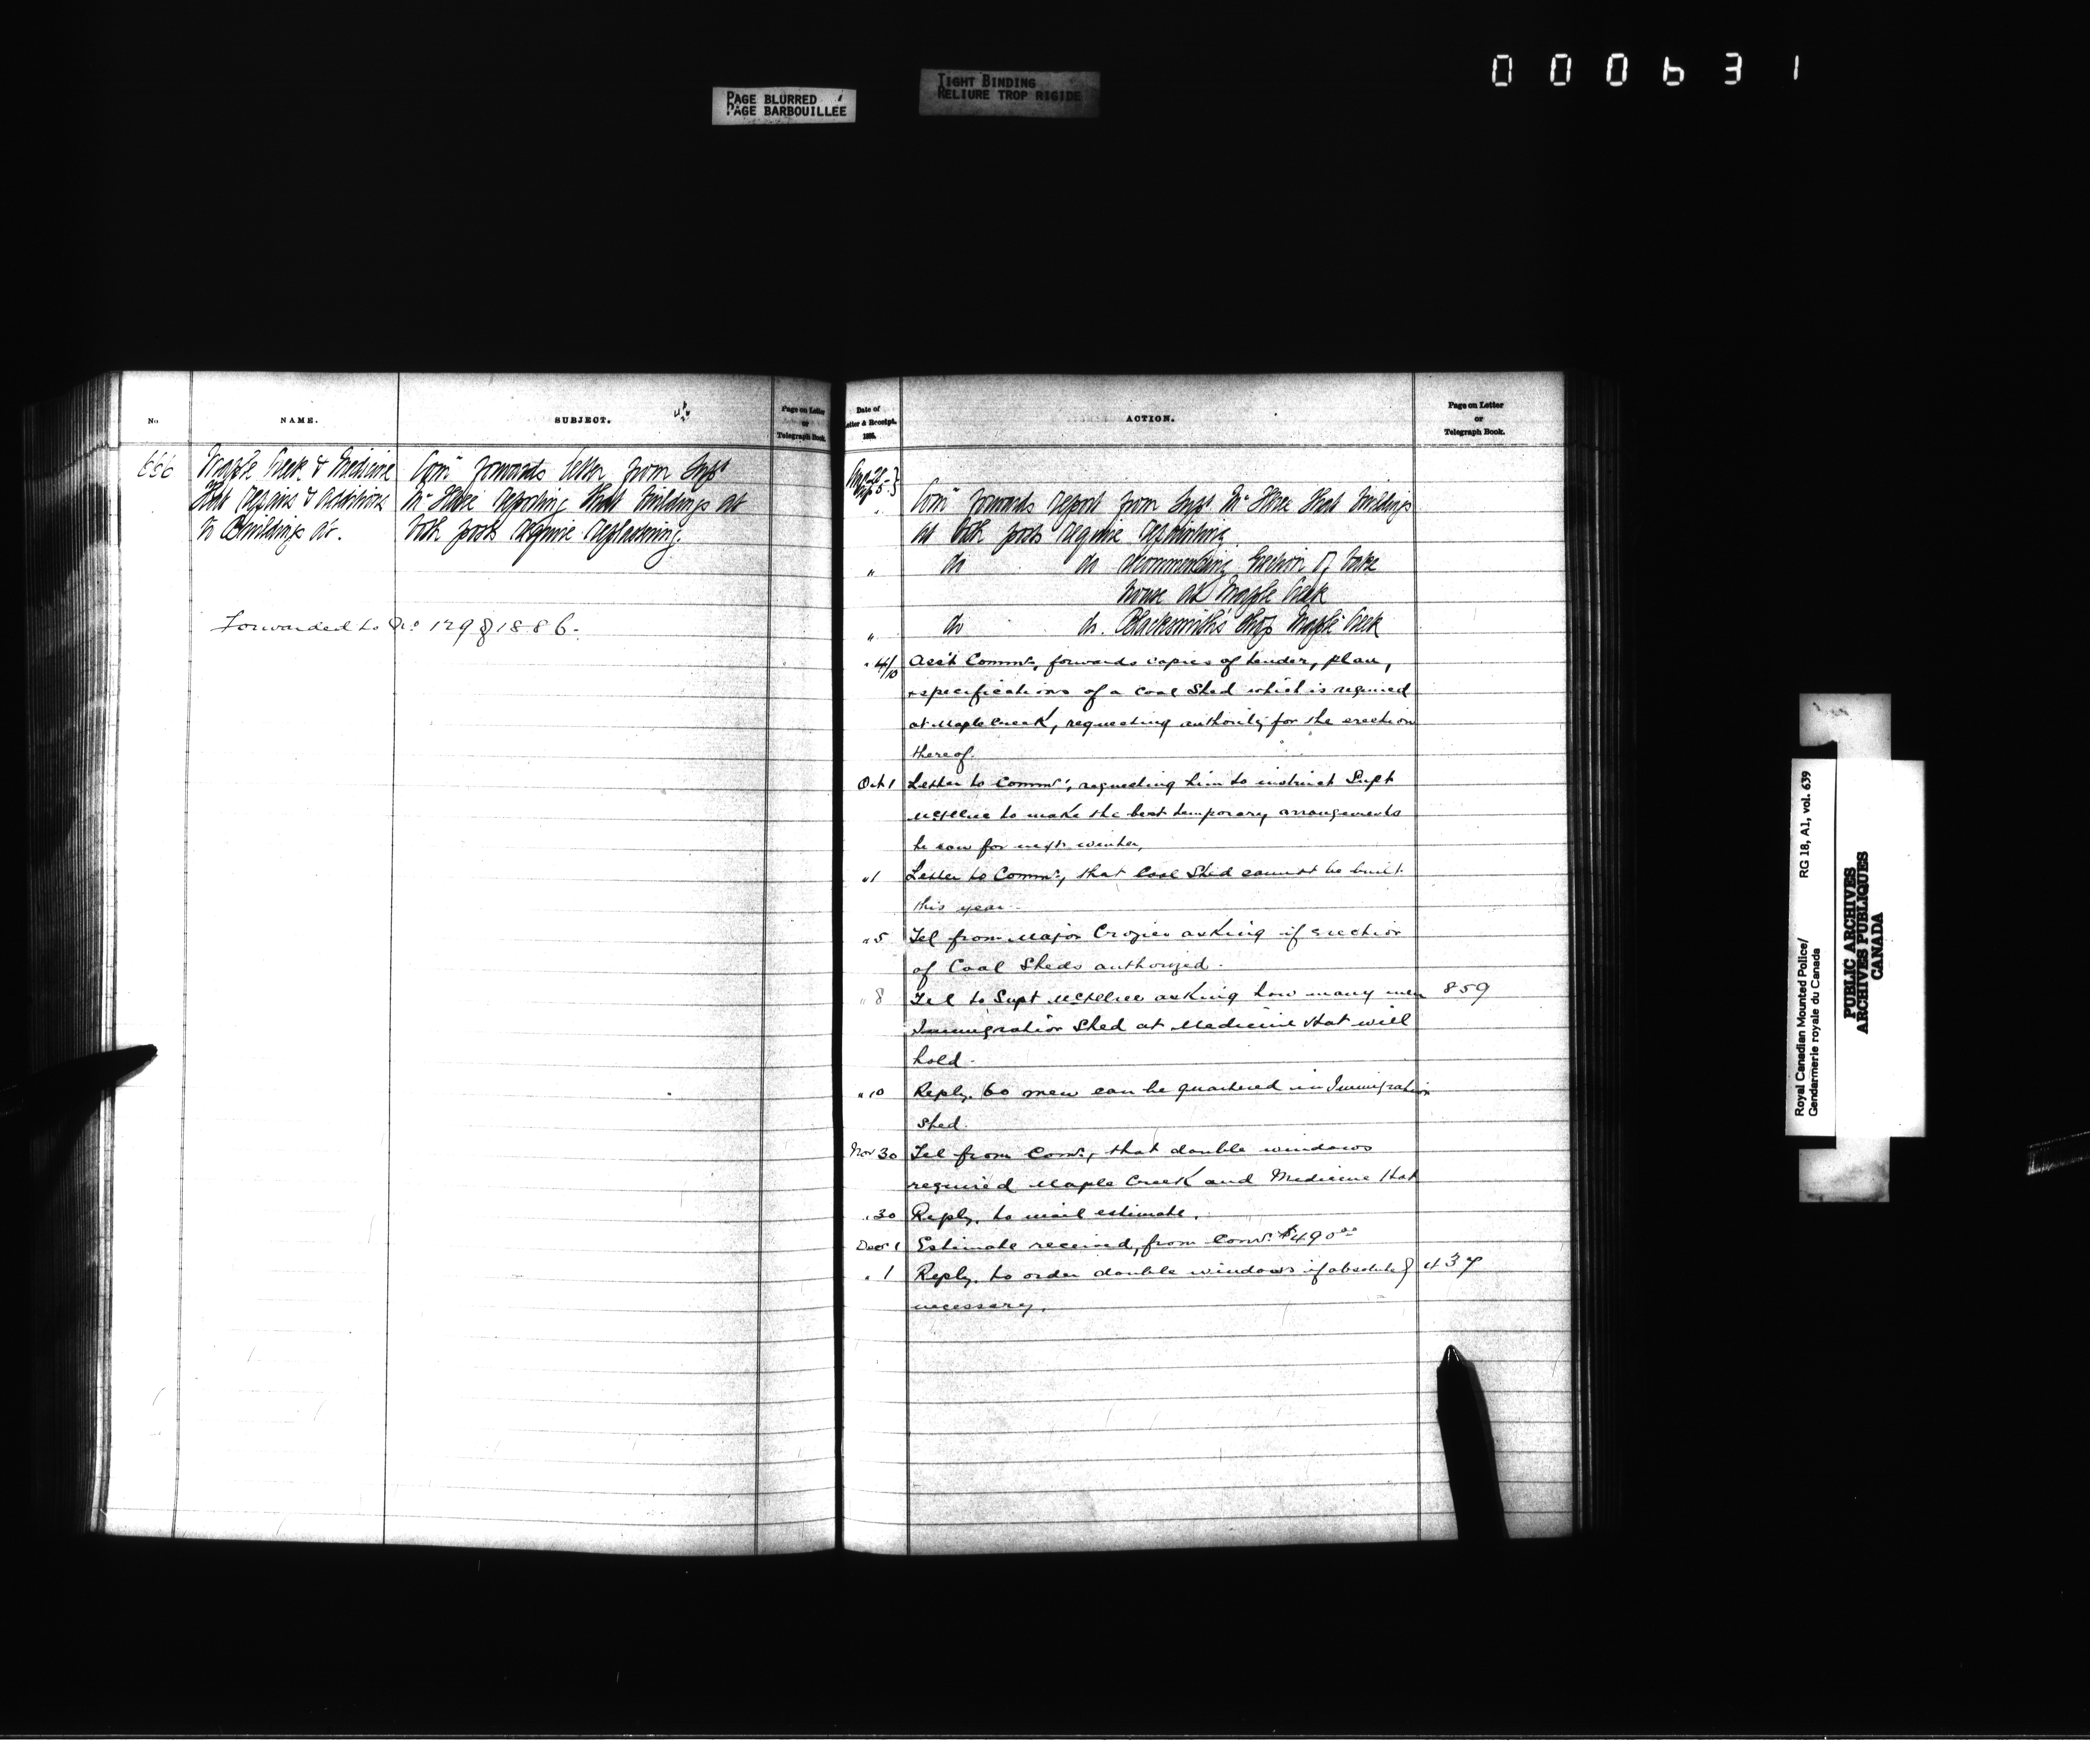 000631
PAGE BLURRED
PAGE BARBOUILLEE
TIGHT BINDING
RELIURE TROP RIGIDE
No
NAME.
SUBJECT.
Page on Letter
or
Telegraph Book.
656
Maple Creek & Medicine
Hat repairs & additions
to Buildings at.
Com'r forwards letter from Supt
McIllree reporting that buildings at
both posts require replastering.
Forwarded to No 129 of 1886.
Date of
Letter & Receipt.
188 .
ACTION.
Page on Letter
or
Telegraph Book.
Com'r forwards report from Supt McIllree that buildings
at both posts require
" do do recommending erection of bake
house at Maple Creek
" do do. Blacksmith's shop Maple Creek
" 4/10 Ass't Commr, forwards copies of tender, plan,
& specifications of a Coal Shed which is required
at Maple Creek, requesting authority for the erection
thereof.
Oct 1 Letter to Commr, requesting him to instruct Supt
McIllree to make the best temporary arrangements
he can for next winter,
" 1 Letter to Commr, that Coal Shed cannot be built
this year.
" 5 Tel from Major Crozier asking if erection
of Coal Sheds authorized.
" 8 Tel to Supt McIllree asking how many men 859
Immigration Shed at Medicine Hat will
hold.
" 10 Reply. 60 men can be quartered in Immigration
Shed.
Nov 30 Tel from Comr, that double windows
required Maple Creek and Medicine Hat
" 30 Reply, to mail estimate.
Decr 1 Estimate received, from Comr. $490.00
" 1 Reply, to order double windows if absolutely 437
necessary.
Royal Canadian Mounted Police/
Gendarmerie royale du Canada
RG 18, A1, vol. 639
PUBLIC ARCHIVES
ARCHIVES PUBLIQUES
CANADA